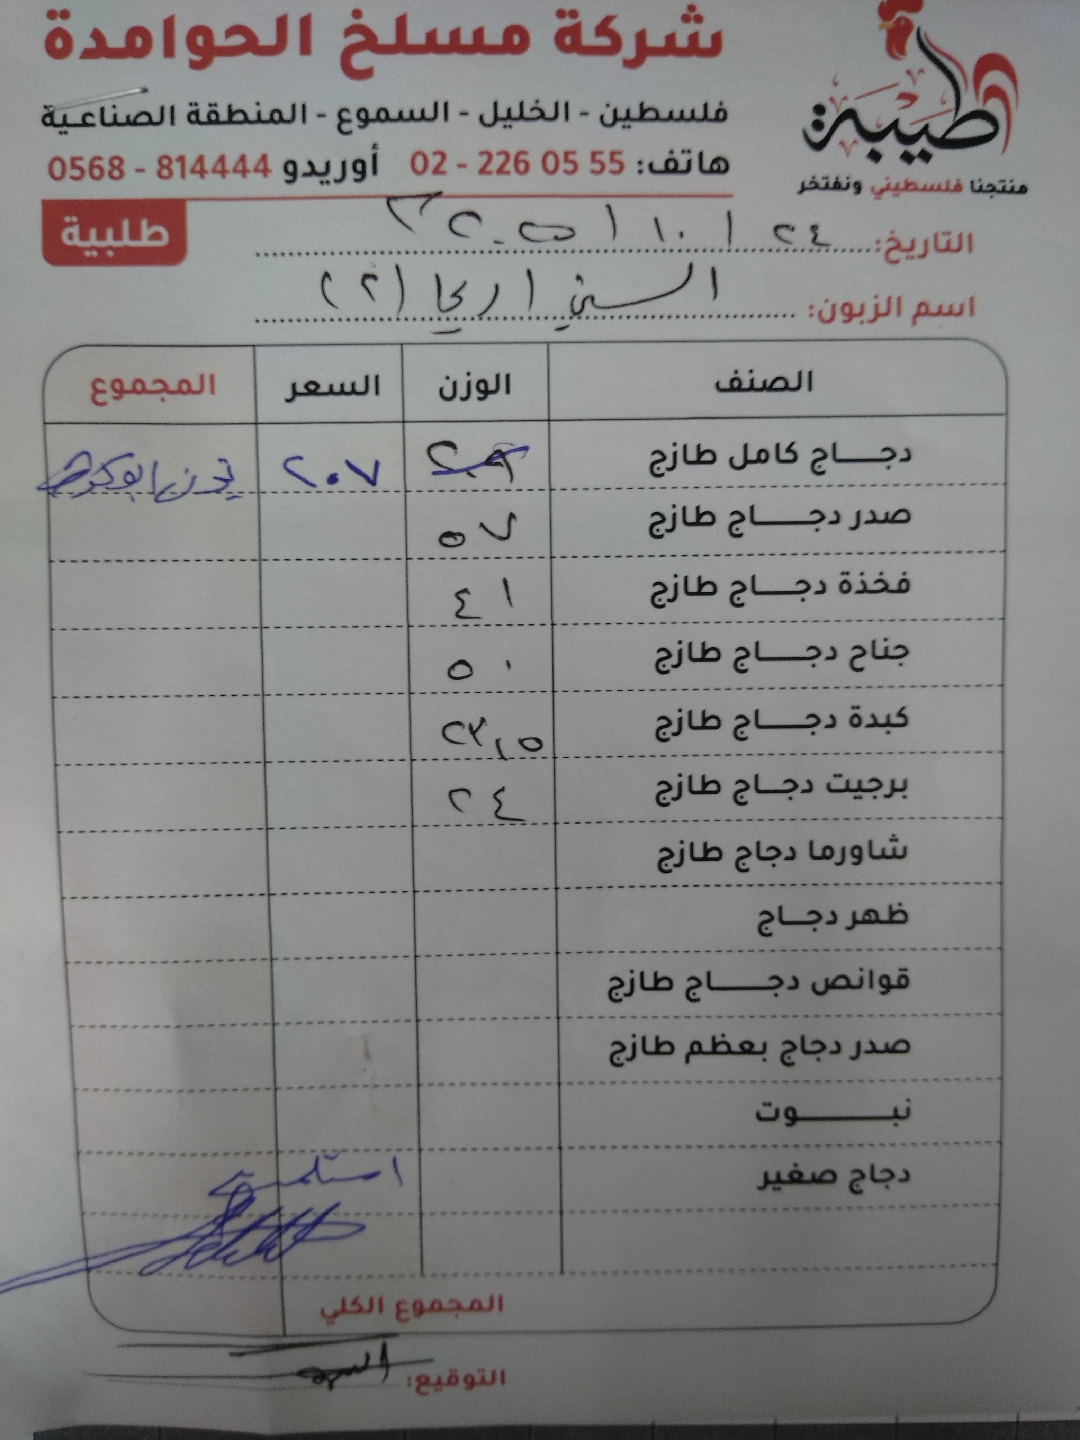 شركة مسلخ الحوامدة
طيبة
فلسطين - الخليل - السموع - المنطقة الصناعية
هاتف: 02 - 226 05 55 أوريدو 0568 - 814444
منتجنا فلسطيني ونفتخر
طلبية
التاريخ: ٢٤ / ١٠ / ٢٠٢٥
اسم الزبون: السني اريحا (٢)
الصنف الوزن السعر المجموع
دجاج كامل طازج ٢٠٧
صدر دجاج طازج ٥٧
فخذة دجاج طازج ٤١
جناح دجاج طازج ٥٠
كبدة دجاج طازج
برجيت دجاج طازج ٢٤
شاورما دجاج طازج
ظهر دجاج
قوانص دجاج طازج
صدر دجاج بعظم طازج
نبوت
دجاج صغير
استلمت
المجموع الكلي
التوقيع: